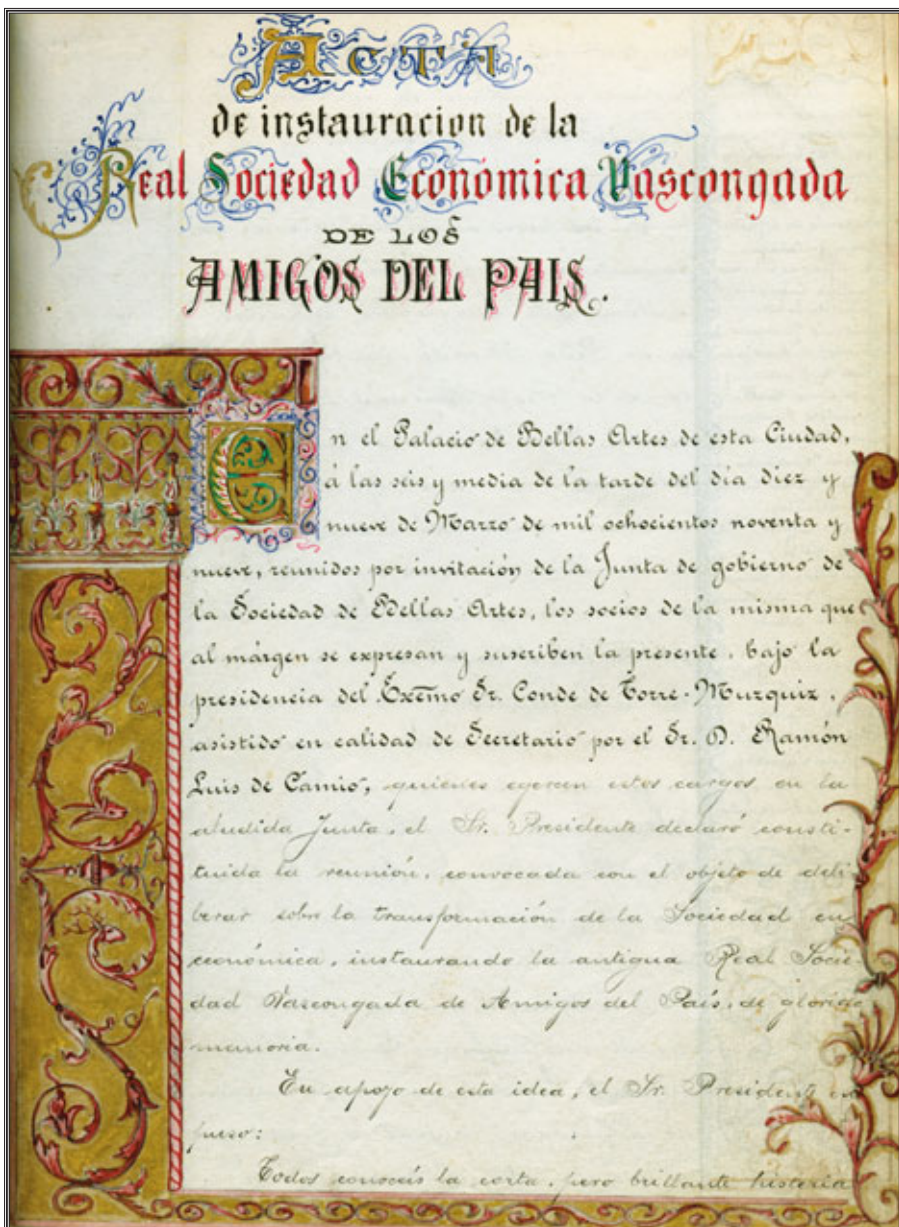 ACTA
de instauracion de la
Real Sociedad Económica Vascongada
DE LOS
AMIGOS DEL PAIS.
En el Palacio de Bellas Artes de esta Ciudad,
á las seis y media de la tarde del día diez y
nueve de Marzo de mil ochocientos noventa y
nueve, reunidos por invitación de la Junta de gobierno de
la Sociedad de Bellas Artes, los socios de la misma que
al márgen se expresan y suscriben la presente, bajo la
presidencia del Excmo Sr. Conde de Torre-Muzquiz,
asistido en calidad de Secretario por el Sr. D. Ramón
Luis de Camio, quienes egercen estos cargos en la
aludida Junta, el Sr. Presidente declaró consti-
tuida la reunión, convocada con el objeto de deli
berar sobre la transformación de la Sociedad en
económica, instaurando la antigua Real Socie-
dad Vascongada de Amigos del País, de gloriosa
memoria.
En apoyo de esta idea, el Sr. Presidente ex
puso:
Todos conocéis la corta, pero brillante historia